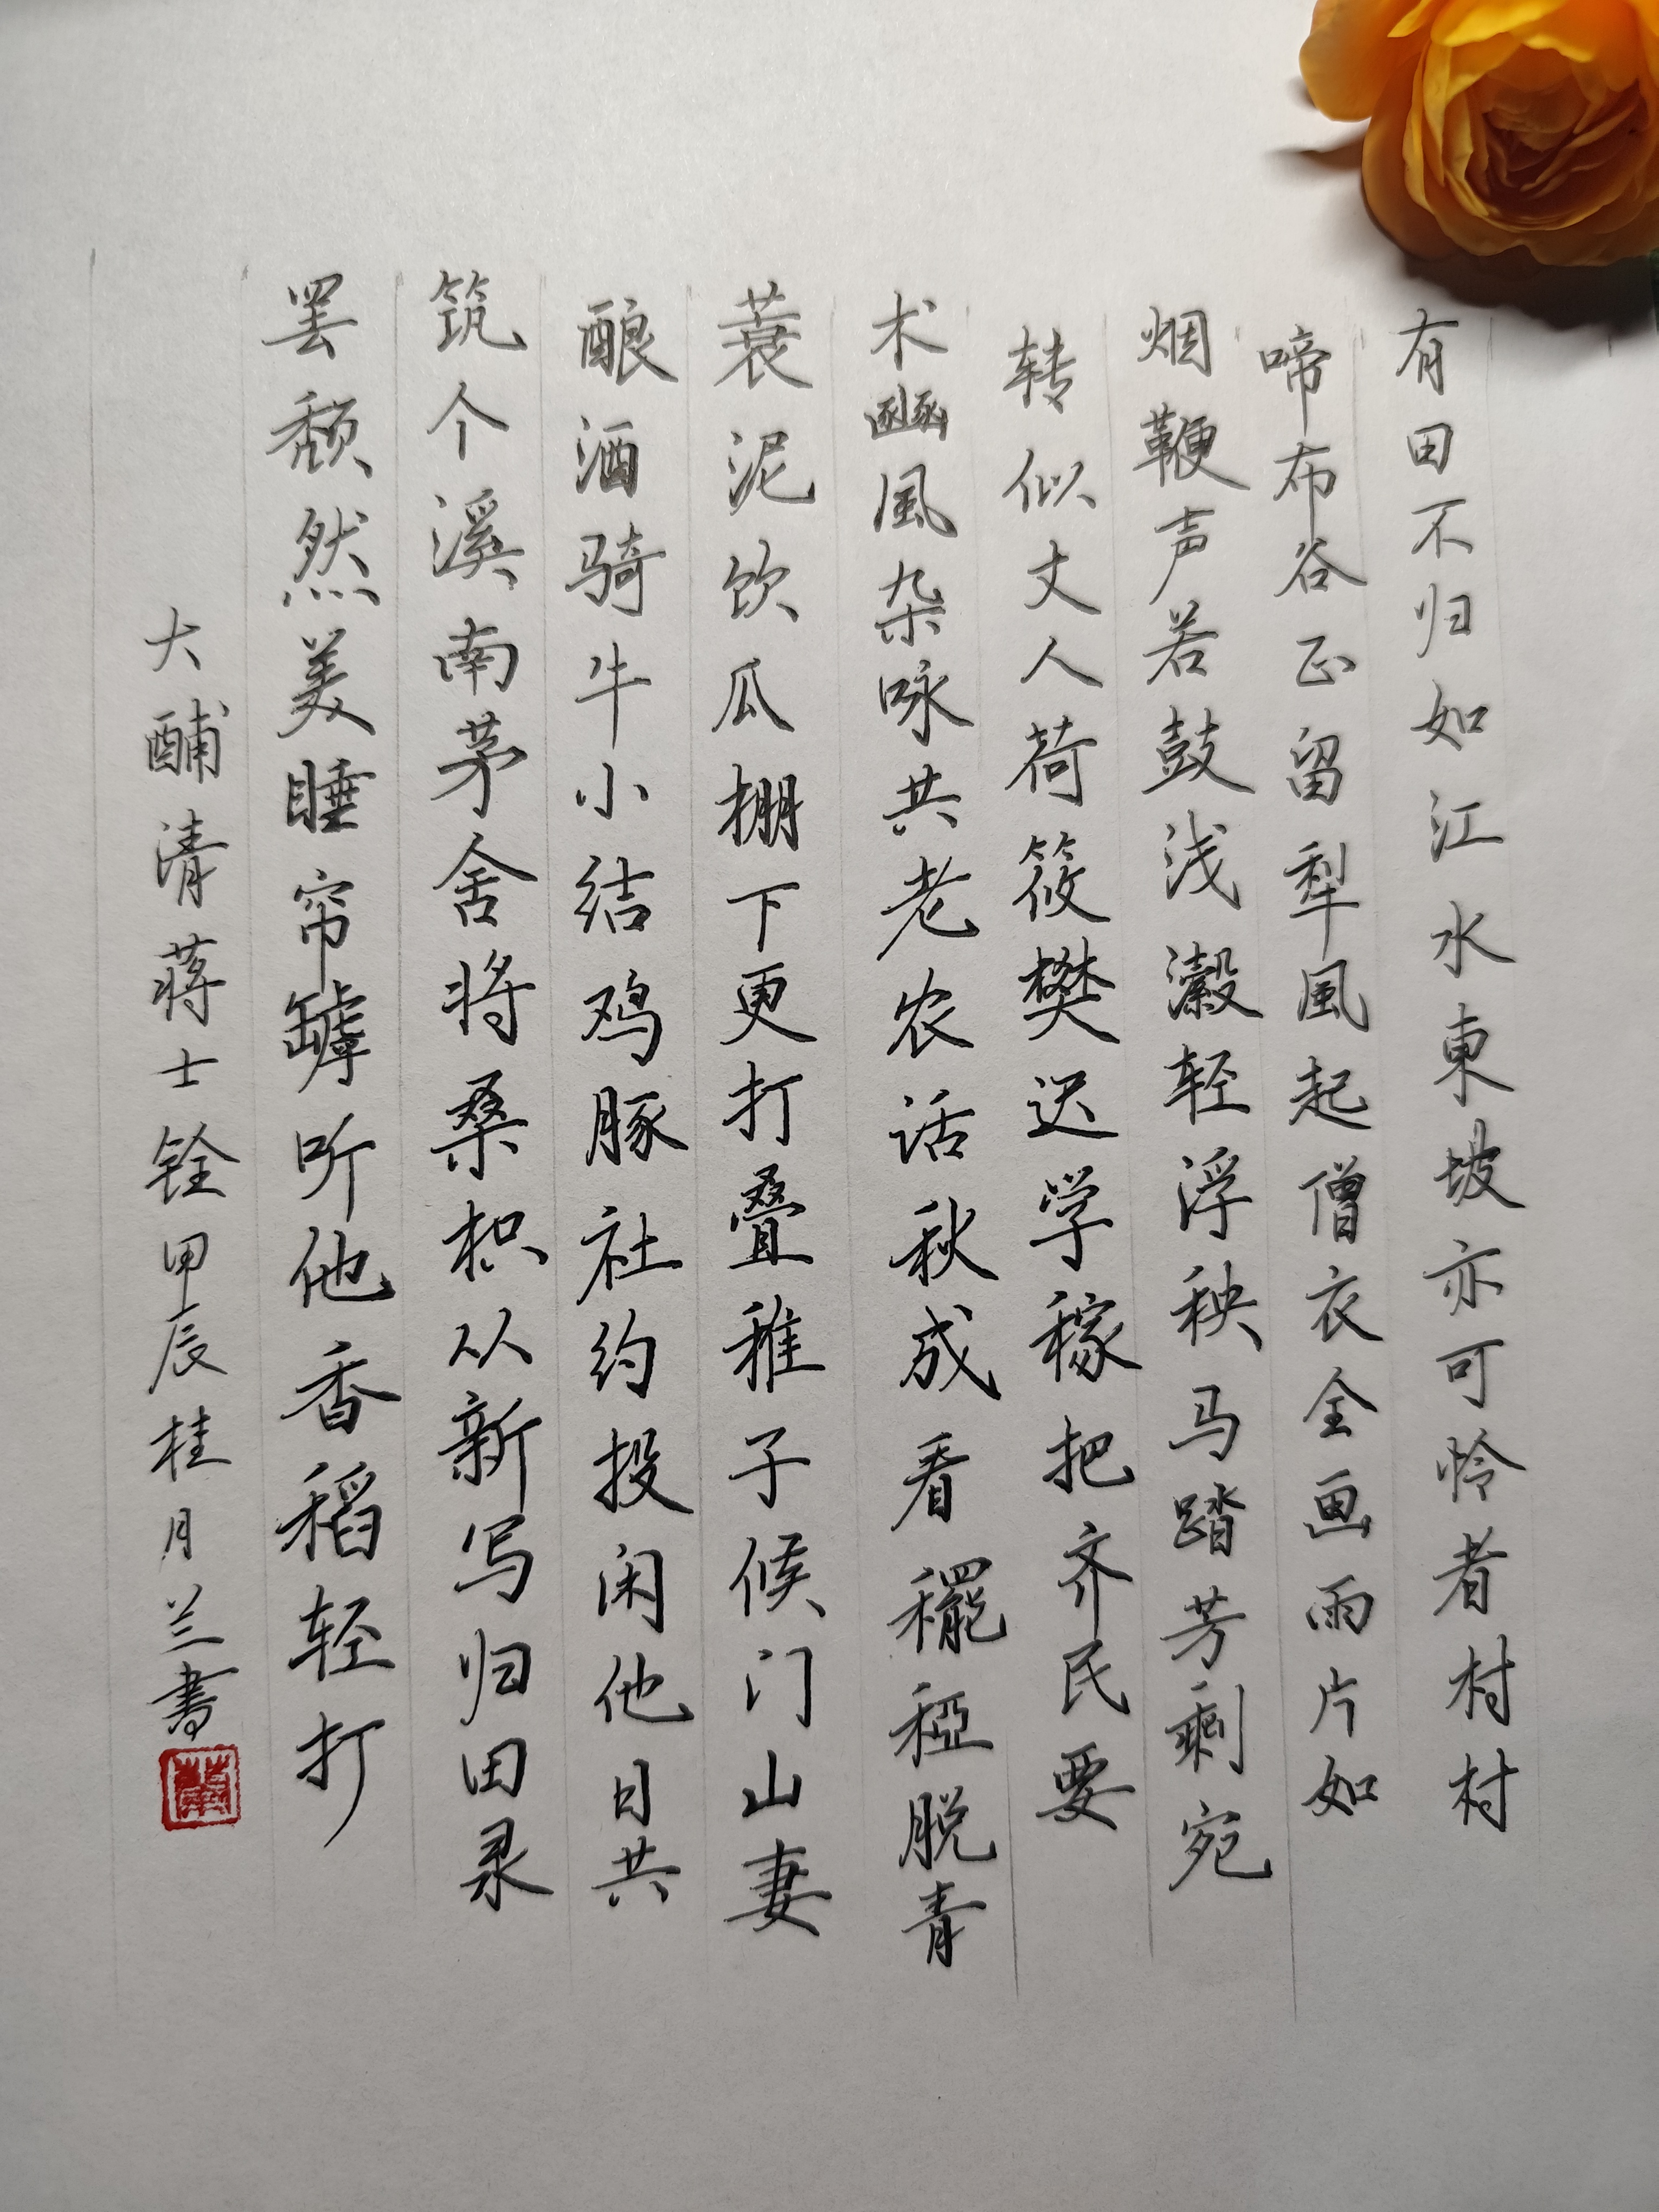 有田不归如江水東坡亦可怜者村村
啼布谷正留犁風起僧衣全画雨片如
烟鞭声若鼓浅瀔轻浮秧马踏芳剩宛
转似丈人荷筱樊迟学稼把齐民要
术豳風杂咏共老农话秋成看䆉稏脱青
蓑泥饮瓜棚下更打叠稚子候门山妻
酿酒骑牛小结鸡豚社约投闲他日共
筑个溪南茅舍将桑枳从新写归田录
罢颓然美睡帘罅听他香稻轻打
大酺清蒋士铨甲辰桂月兰書